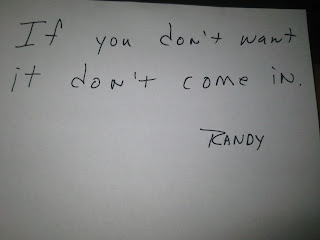 If you don't want
it don't come in.
RANDY